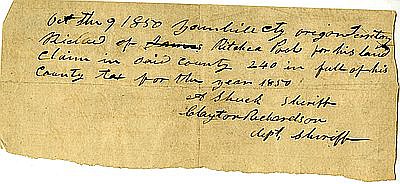 Oct the 9 1850 Yamhill Cty oregon Territory
Recied of James Ritchea Pock for his land
Claim in said County 240 in full of his
County tax for the year 1850
A Shuck Sheriff
Clayton Richardson
dept, Sheriff